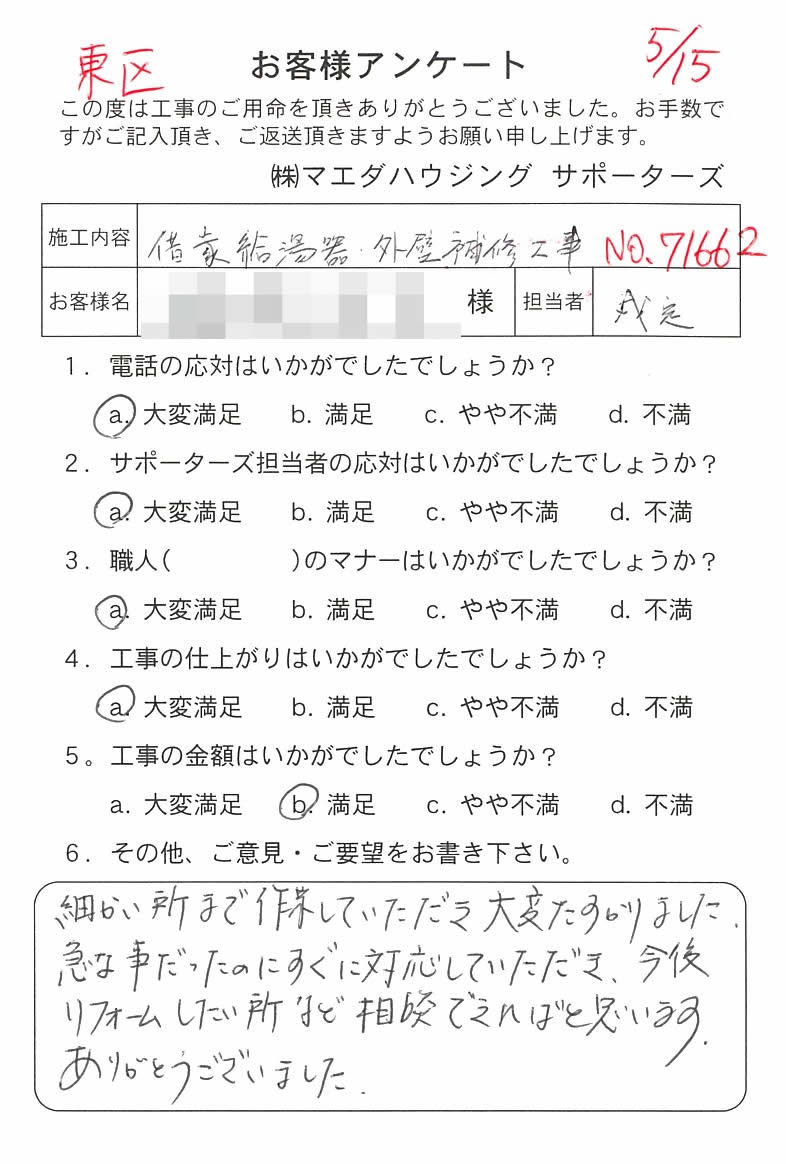 東区
お客様アンケート
5/15
この度は工事のご用命を頂きありがとうございました。お手数で
すがご記入頂き、ご返送頂きますようお願い申し上げます。
㈱マエダハウジング サポーターズ
施工内容 借家給湯器・外壁補修工事 NO.71662
お客様名 様 担当者
1. 電話の応対はいかがでしたでしょうか？
a. 大変満足 b. 満足 c. やや不満 d. 不満
2. サポーターズ担当者の応対はいかがでしたでしょうか？
a. 大変満足 b. 満足 c. やや不満 d. 不満
3. 職人( )のマナーはいかがでしたでしょうか？
a. 大変満足 b. 満足 c. やや不満 d. 不満
4. 工事の仕上がりはいかがでしたでしょうか？
a. 大変満足 b. 満足 c. やや不満 d. 不満
5。工事の金額はいかがでしたでしょうか？
a. 大変満足 b. 満足 c. やや不満 d. 不満
6. その他、ご意見・ご要望をお書き下さい。
細かい所まで作業していただき大変たすかりました.
急な事だったのにすぐに対応していただき、今後
リフォームしたい所など相談できればと思います.
ありがとうございました.